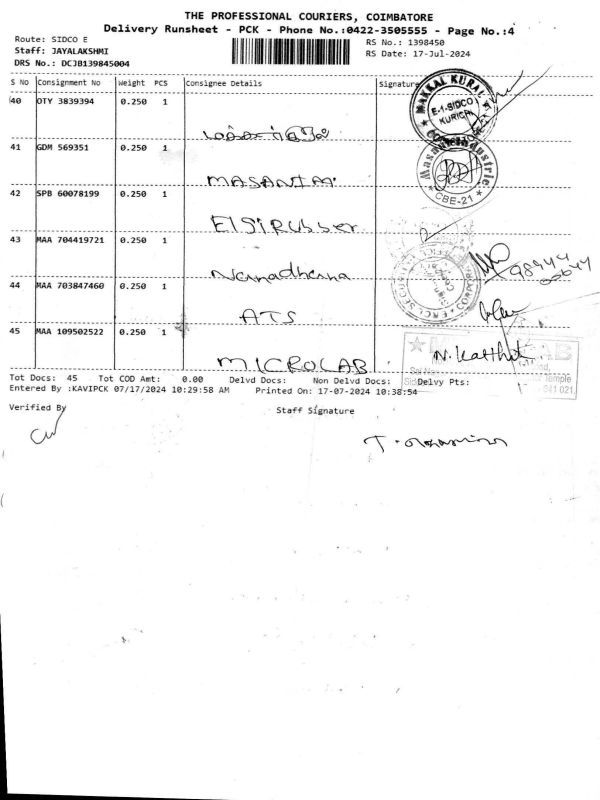 THE PROFESSIONAL COURIERS, COIMBATORE
Delivery Runsheet - PCK - Phone No.:0422-3505555 - Page No.:4
Route: SIDCO E
RS No.: 1398450
Staff: JAYALAKSHMI
RS Date: 17-Jul-2024
DRS No.: DCJB139845004
S No Consignment No Weight PCS Consignee Details Signature
40 OTY 3839394 0.250 1
MAKKAL KURAL
E-1-SIDCO
KURICHI
41 GDM 569351 0.250 1
MASANIM
CBE-21
42 SPB 60078199 0.250 1
Elgi Rubber
43 MAA 704419721 0.250 1
44 MAA 703847460 0.250 1
ATS
45 MAA 109502522 0.250 1
MICROLAB
Tot Docs: 45 Tot COD Amt: 0.00 Delvd Docs: Non Delvd Docs: Delvy Pts:
Entered By :KAVIPCK 07/17/2024 10:29:58 AM Printed On: 17-07-2024 10:38:54
Verified By
Staff Signature